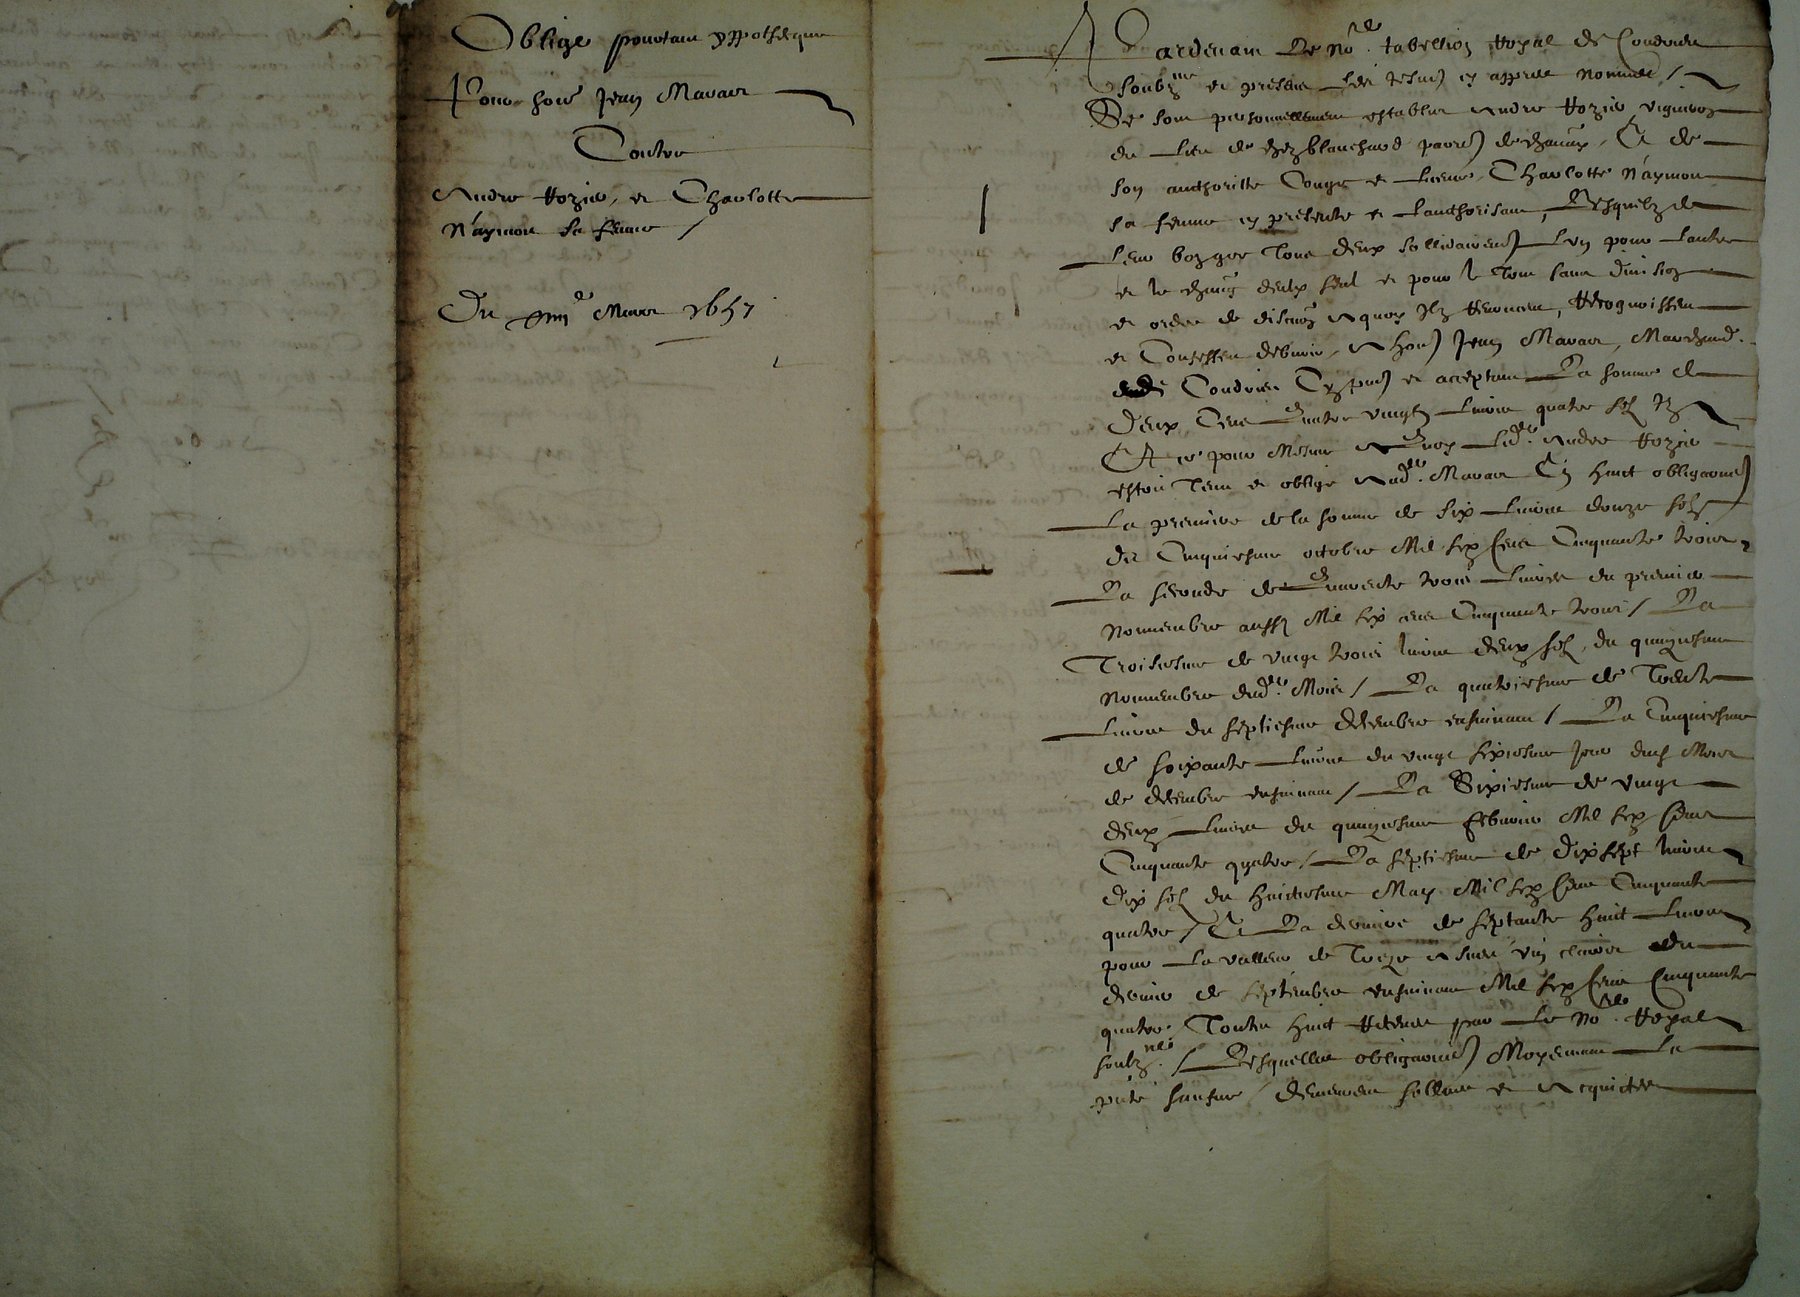 Oblige portant yppotheque
Pour sieur Jean Mavar
Contre
Andre Rozier, et Charlotte
N'aymon sa femme /
Du iiii.e Mars 1657
Pardevant Le no.re tabellion Royal de Condrieu
soubz.ne et present Les tesm. en appres nommes /
Se sont personnellement establis Andre Rozier vigneron
du Lieu de chezblanchard parr. de chavanay, Et de
son authoritte Conge et Licence Charlotte N'aymon
sa femme en presente et lauthorisant, Lesquelz de
Leur bon gre Tous deux sollidairem. Lun pour Lautre
et le chacung deulx seul et pour le Tout sans division
et ordre de discution a quoy Ilz Renoncent, Recognoissent
et Confessent debvoir A hon. Jean Mavar, Marchand
dudit Condrieu Cy pnt et acceptant La somme de
Deux Cens Quatre vingtz Livres quatre solz
Et ce pour Mesme A Quoy Led. Andre Rozier
estoit Tenu et oblige Aud. Mavar En huict obligations
La premiere de la somme de six Livres douze solz
du Cinquiesme octobre Mil six Cens Cinquante trois
La seconde de Quarente trois Livres du premier
Novembre aussy Mil six cens Cinquante trois / La
Troisiesme de vingt trois livres deux solz, du quinziesme
Novembre dud. Mois / La quatriesme de Trente
Livres du septiesme decembre ensuivant / La Cinquiesme
de soixante Livres du vingt sixiesme jour dud. Mois
de decembre ensuivant / La Sixiesme de vingt
deux Livres du quinziesme febvrier Mil six Cens
Cinquante quatre / La septiesme de dix sept livres
dix solz du huictiesme May Mil six Cens Cinquante
quatre / Et La derniere de septante huict Livres
pour La valleur de Treze Asnees vin clairet du
dernier de septembre ensuivant Mil six Cens Cinquante
quatre Toutes huict Receues par Le No.re Royal
soubz.ne / Lesquelles obligations Moyennant La
pnte somme / demeurent sollues et Acquictees